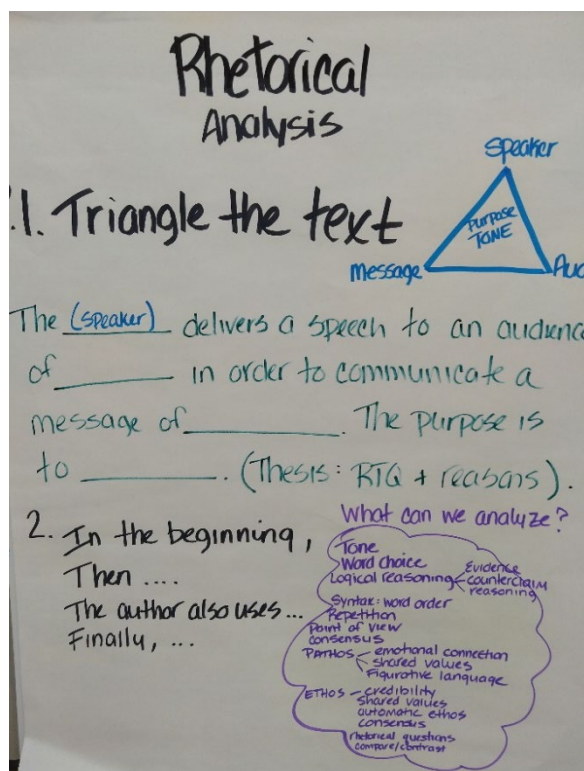 Rhetorical
Analysis
1. Triangle the text
speaker
purpose
TONE
message
Aud
The (speaker) delivers a speech to an audienc
of ________ in order to communicate a
message of __________. The purpose is
to _________. (Thesis: RTQ + reasons).
2. In the beginning,
Then ....
The author also uses...
Finally, ...
What can we analyze?
Tone
Word choice
Logical reasoning
Evidence
counterclaim
reasoning
Syntax: word order
Repetition
Point of view
consensus
PATHOS
emotional connection
shared values
Figurative language
ETHOS
credibility
shared values
automatic ethos
consensus
rhetorical questions
compare/contrast